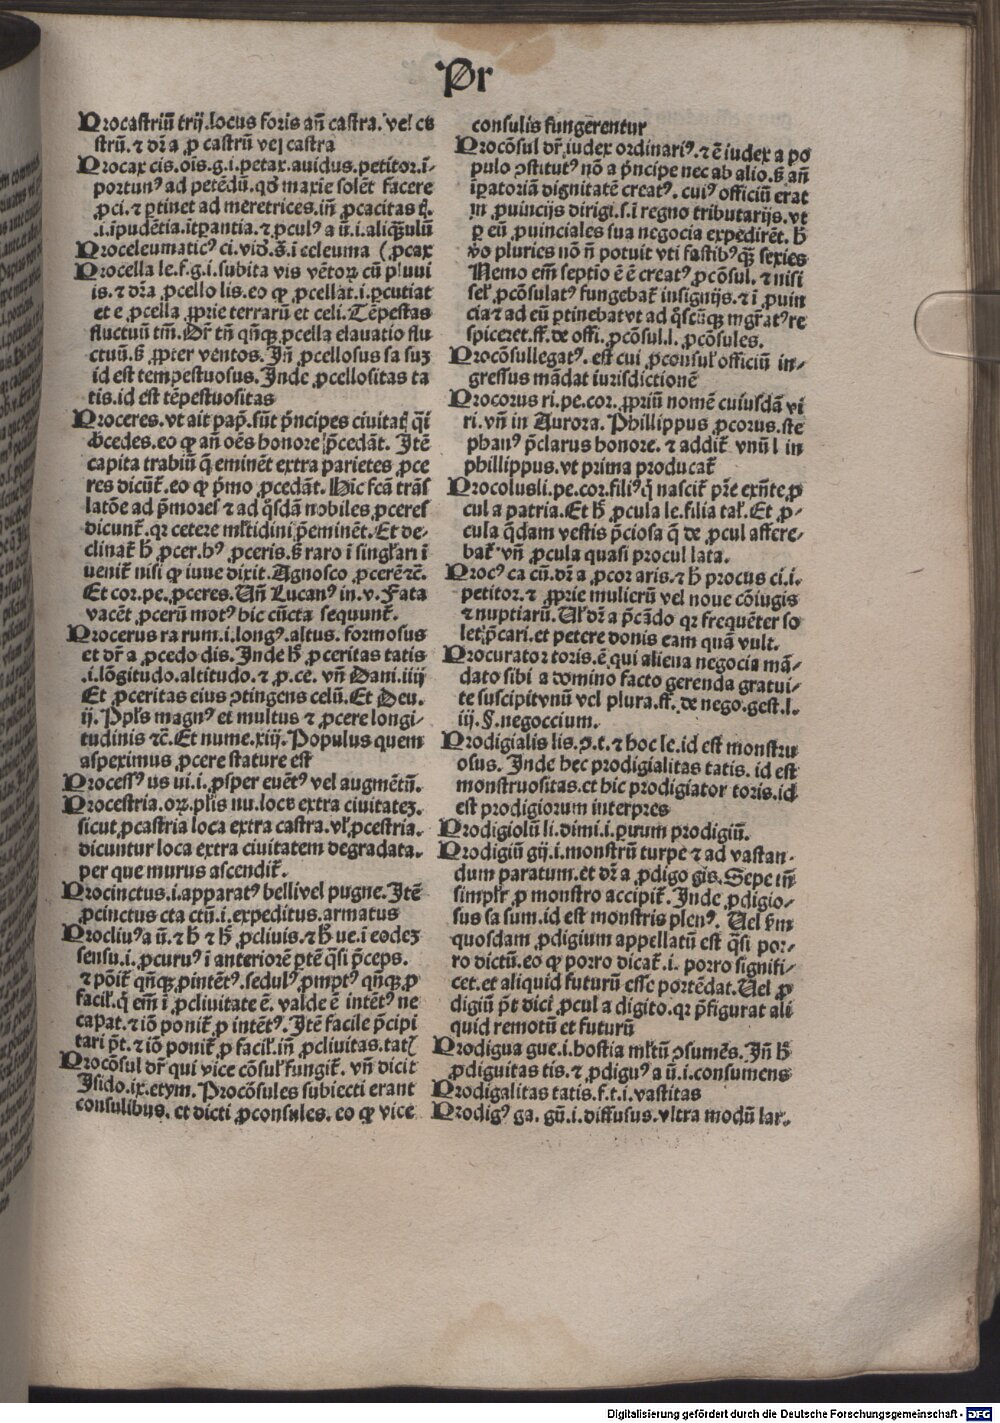 Pr
Procastriū trij.locus foris añ castra. vel cu
strū. ⁊ dr̃a ꝓ castrū vel castra
Procax cis.oīs.g.i.petax.auidus.petitor.ī⸗
portunꝰ ad petēdū.qď maxīe solēt facere
ꝓci.⁊ ꝑtinet ad meretrices.iñ ꝓcacitas tꝭ.
.i.īpudētia.itꝑantia.⁊ ꝓculꝰ a ū.i.aliqͣ̄tulū
Proceleumaticꝰ ci.vid̉.s̄.ī celeuma (ꝓcax
Procella le.f.g.i.subita vis vētoꝝ cū pluui
is.⁊ dr̃a ꝓcello lis.eo ꝙ ꝓcellat.i.ꝑcutiat
et e ꝓcella ꝓprie terrarū et celi. Tēpestas
fluctuū tm̄. Dr̄ tñ qñqꝫ ꝓcella elauatio flu
ctuū.ſꝫ ꝓpter ventos. Iñ ꝓcellosus sa suꝫ
id est tempestuosus. Inde ꝓcellositas ta
tis.id est tēpestuositas
Proceres.vt ait pap̃.sūt pͥncipes ciuitatꝭ q̄i
p̄cedes.eo ꝙ añ oēs honore p̄cedāt. Itē
capita trabiū q̄ eminēt extra parietes ꝓce
res dicūt̃.eo ꝙ pͥmo ꝓcedāt. Hic fc̄a trās
latōe ad pͥmores ⁊ ad qͦsdā nobiles ꝓceres
dicunt̃.qꝛ cetere ml̃tidini p̄eminēt. Et de⸗
clinat̃ h̄ ꝓcer.hꝰ ꝓceris.ſꝫ raro ī singl̃ari ī
uenit̃ nisi ꝙ iuue dixit. Agnosco ꝓcerē ⁊c̄.
Et cor.pe.ꝓceres. Uñ Lucanꝰ in.v. Fata
vacēt ꝓcerū motꝰ hic cūcta sequunt̃.
Procerus ra rum.i.longꝰ.altus. formosus
et dr̄ a ꝓcedo dis. Inde h̄ ꝓceritas tatis
.i.lōgitudo.altitudo.⁊ ꝓ.ce. vñ Dani.iiij
Et ꝓceritas eius ꝯtingens celū. Et Deu.
ij. Ppl̃s magnꝰ et multus ⁊ ꝓcere longi⸗
tudinis ⁊c̄. Et nume.xiij. Populus quem
aspeximus ꝓcere stature est
Processꝰ us ui.i.ꝓsper euētꝰ vel augmētū.
Procestria.oꝝ.pl̃is nu.locꝰ extra ciuitateꝫ.
sicut ꝓcastria loca extra castra.vl̃ ꝓcestria.
dicuntur loca extra ciuitatem degradata.
per que murus ascendit̃.
Procinctus.i.apparatꝰ belli vel pugne. Itē
ꝓcinctus cta ctū.i.expeditus.armatus
Procliuꝰ a ū.⁊ h̄ ⁊ h̄ ꝓcliuis.⁊ h̄ ue.ī eodeꝫ
sensu.i.ꝓcuruꝰ ī anteriorē ꝑtē qͣsi p̄ceps.
⁊ pōit̃ qñqꝫ ꝓ intētꝰ.sedulꝰ ꝓmptꝰ qñqꝫ ꝓ
facil̃.q̄ em̄ ī ꝓcliuitate ē. valde ē intētꝰ ne
capat.⁊ iō ponit̃ ꝓ intētꝰ. Itē facile p̄cipi
tari pōt.⁊ iō ponit̃ ꝓ facil̃.iñ ꝓcliuitas.tatꝭ
Procōsul dr̄ qui vice cōsul̃ fungit̃. vñ dicit
Isido.ix.etym. Procōsules subiecti erant
consulibus. et dicti ꝓconsules. eo ꝙ vice
consulis fungerentur
Procōsul dr̄.iudex ordinariꝰ.⁊ ē iudex a po
pulo ꝯstitutꝰ nō a pͥncipe nec ab alio.ſꝫ añ
īꝑatoriā dignitatē creatꝰ. cuiꝰ officiū erat
in ꝓuincijs dirigi.s.ī regno tributarijs.vt
ꝑ eū ꝓuinciales sua negocia expedirēt. h̄
ṽo pluries nō ñ potuit vti fastibꝰ qͣꝫ sexies
Nemo em̄ septio ē ē creatꝰ ꝓcōsul.⁊ nisi
sel̃ ꝓcōsulatꝰ fungebat̃ insignijs.⁊ ī ꝓuin
cia ⁊ ad eū ꝑtinebat vt ad qͦscūqꝫ mgr̄atꝰ re
spiceret.ff.de offi.ꝓcōsul.l.ꝓcōsules.
Procōsul legatꝰ.est cui ꝓconsul̃ officiū in⸗
gressus mādat iurisdictionē
Procorus ri.pe.cor.ꝓpriū nomē cuiusdā vi
ri.vñ in Aurora. Phillippus ꝓcorus.ste
phanꝰ p̄clarus honore.⁊ addit̃ vnū l in
phillippus.vt prima producat̃
Procolus li.pe.cor.filiꝰ qͥ nascit̃ pr̃e exñte ꝓ
cul a patria. Et h̄ ꝓcula le.filia tal̃. Et ꝓ⸗
cula q̄dam vestis p̄ciosa q̄ de ꝓcul affere⸗
bat̃ vñ ꝓcula quasi procul lata.
Procꝰ ca cū.dr̃a a ꝓcor aris.⁊ h̄ procus ci.i.
petitor.⁊ ꝓprie mulierū vel noue cōiugis
⁊ nuptiarū. Ul̃ dr̃a a p̄cādo qꝛ frequēter so
let p̄cari.et petere donis eam quā vult.
Procurator toris.ē qui aliena negocia mā⸗
dato sibi a domino facto gerenda gratui⸗
te suscipit vnū vel plura.ff.de nego.gest.l.
iij.§.negoccium.
Prodigialis lis.o.t.⁊ hoc le.id est monstru
osus. Inde hec prodigialitas tatis. id est
monstruositas.et hic prodigiator toris.id
est prodigiorum interpres
Prodigiolū li.dimi.i.paruum prodigiū.
Prodigiū gij.i.monstrū turpe ⁊ ad vastan⸗
dum paratum.et dr̃a ꝓdigo gis. Sepe tñ
simpl̃r ꝓ monstro accipit̃. Inde ꝓdigio⸗
sus sa sum.id est monstris plenꝰ. Uel ẜm
quosdam ꝓdigium appellatū est qͣsi por⸗
ro dictū.eo ꝙ porro dicat̃.i. porro signifi⸗
cet.et aliquid futurū esse portēdat. Uel ꝓ
digiū pōt dici ꝓcul a digito.qꝛ p̄figurat ali
quid remotū et futurū
Prodigua gue.i.hostia ml̃tū ꝯsumēs. Iñ h̄
ꝓdiguitas tis.⁊ ꝓdiguꝰ a ū.i.consumens
Prodigalitas tatis.f.t.i.vastitas
Prodigꝰ ga. gū.i.diffusus.vltra modū lar⸗
Digitalisierung gefördert durch die Deutsche Forschungsgemeinschaft - DFG